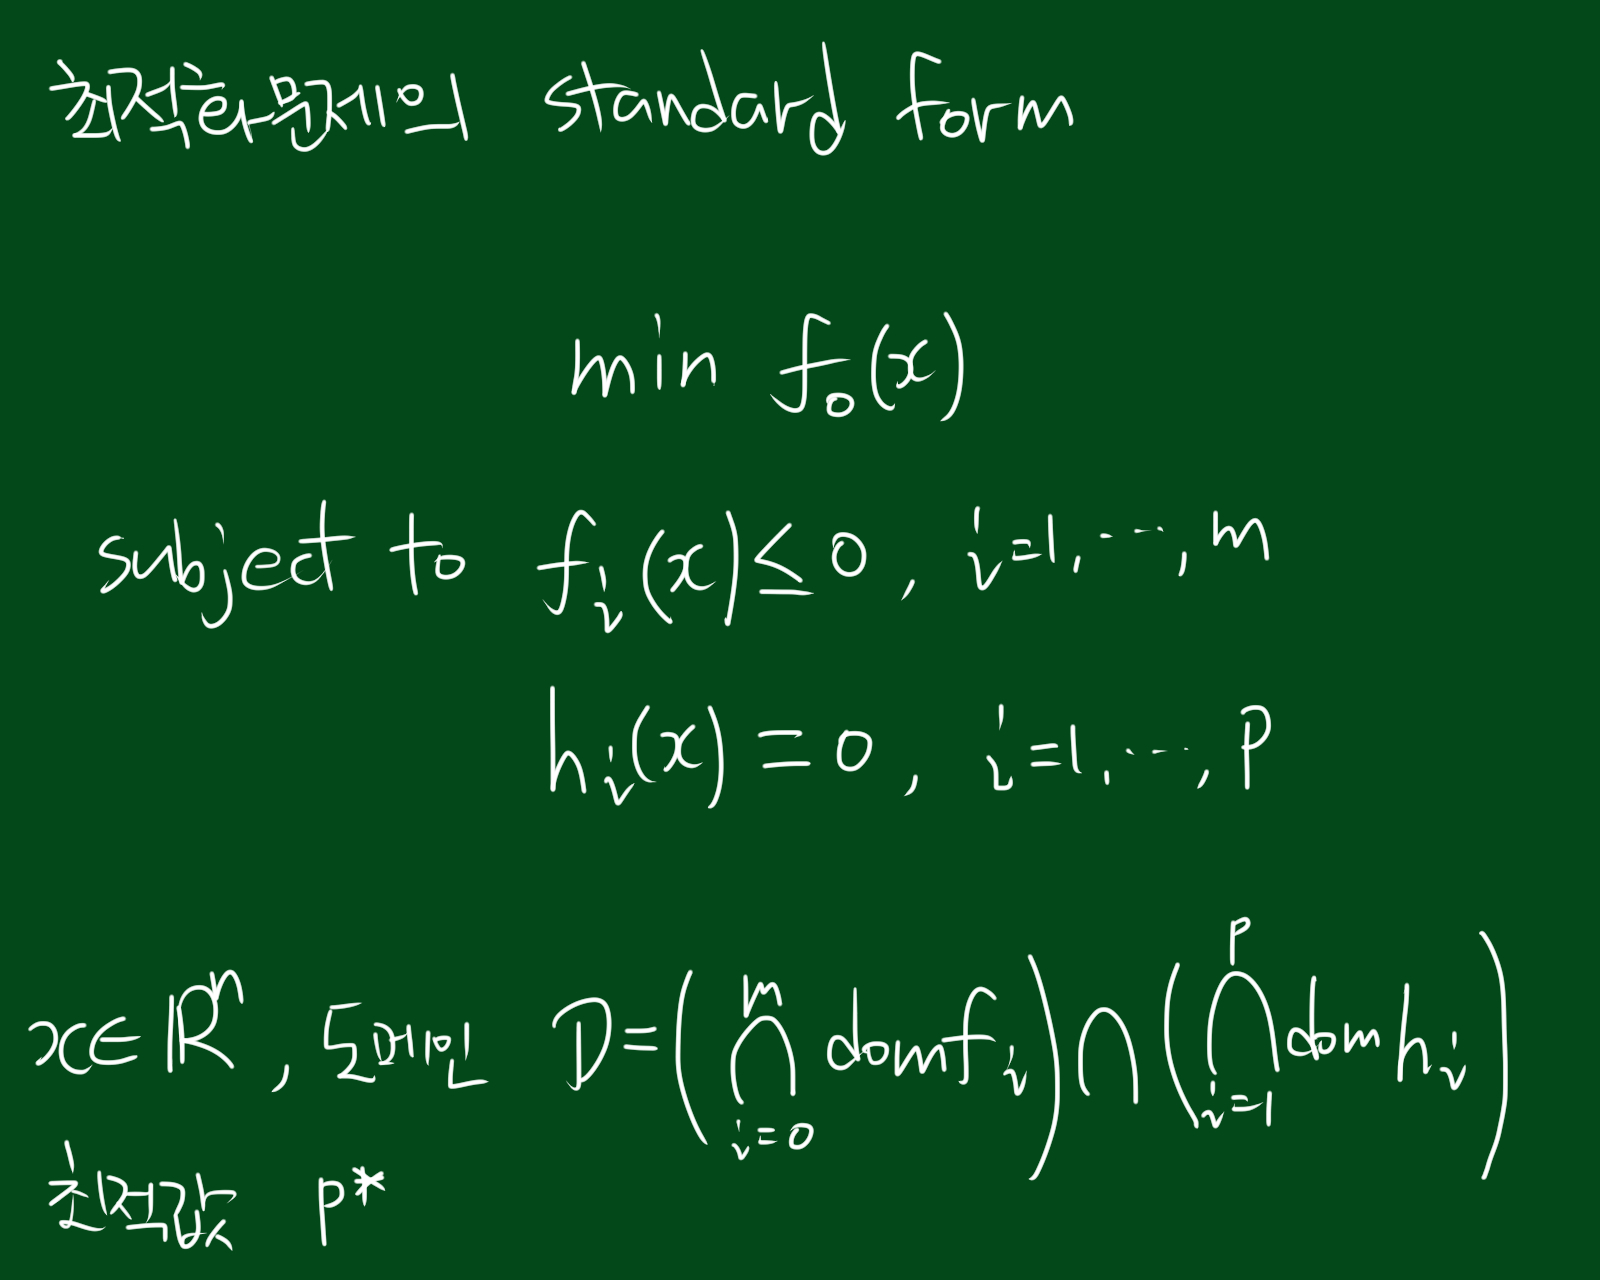 최적화문제의 standard form
min f₀(x)
subject to fᵢ(x) ≤ 0, i=1, ⋯, m
hᵢ(x) = 0, i=1, ⋯, p
x∈ℝⁿ, 도메인 D = (⋂_{i=0}^{m} dom fᵢ) ∩ (⋂_{i=1}^{p} dom hᵢ)
최적값 p*